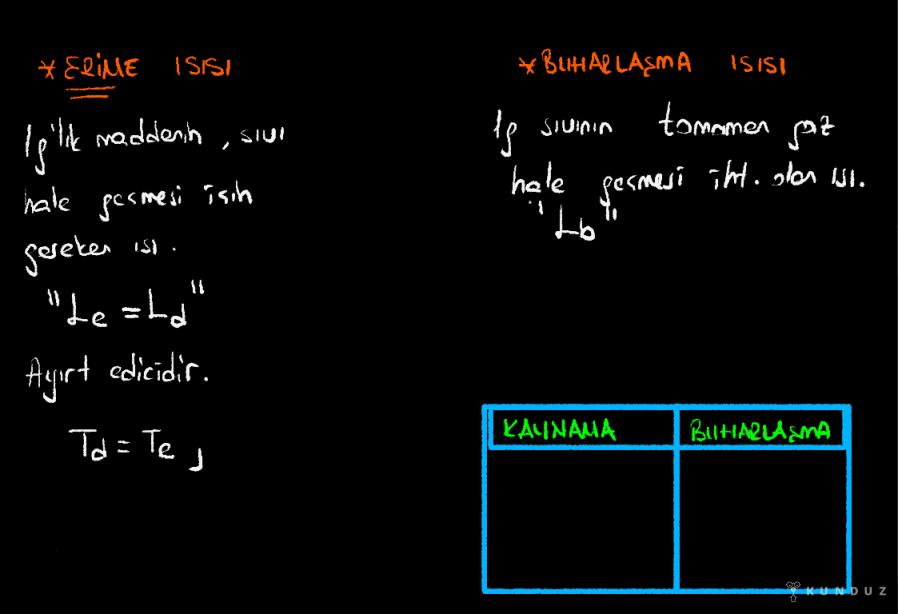 * ERİME ISISI
1g'lık maddenin, sıvı
hale geçmesi için
gereken ısı.
"Le = Ld"
Ayırt edicidir.
Td = Te
* BUHARLAŞMA ISISI
1g sıvının tamamen gaz
hale geçmesi iht. olan ısı.
"Lb"
KAYNAMA
BUHARLAŞMA
KUNDUZ